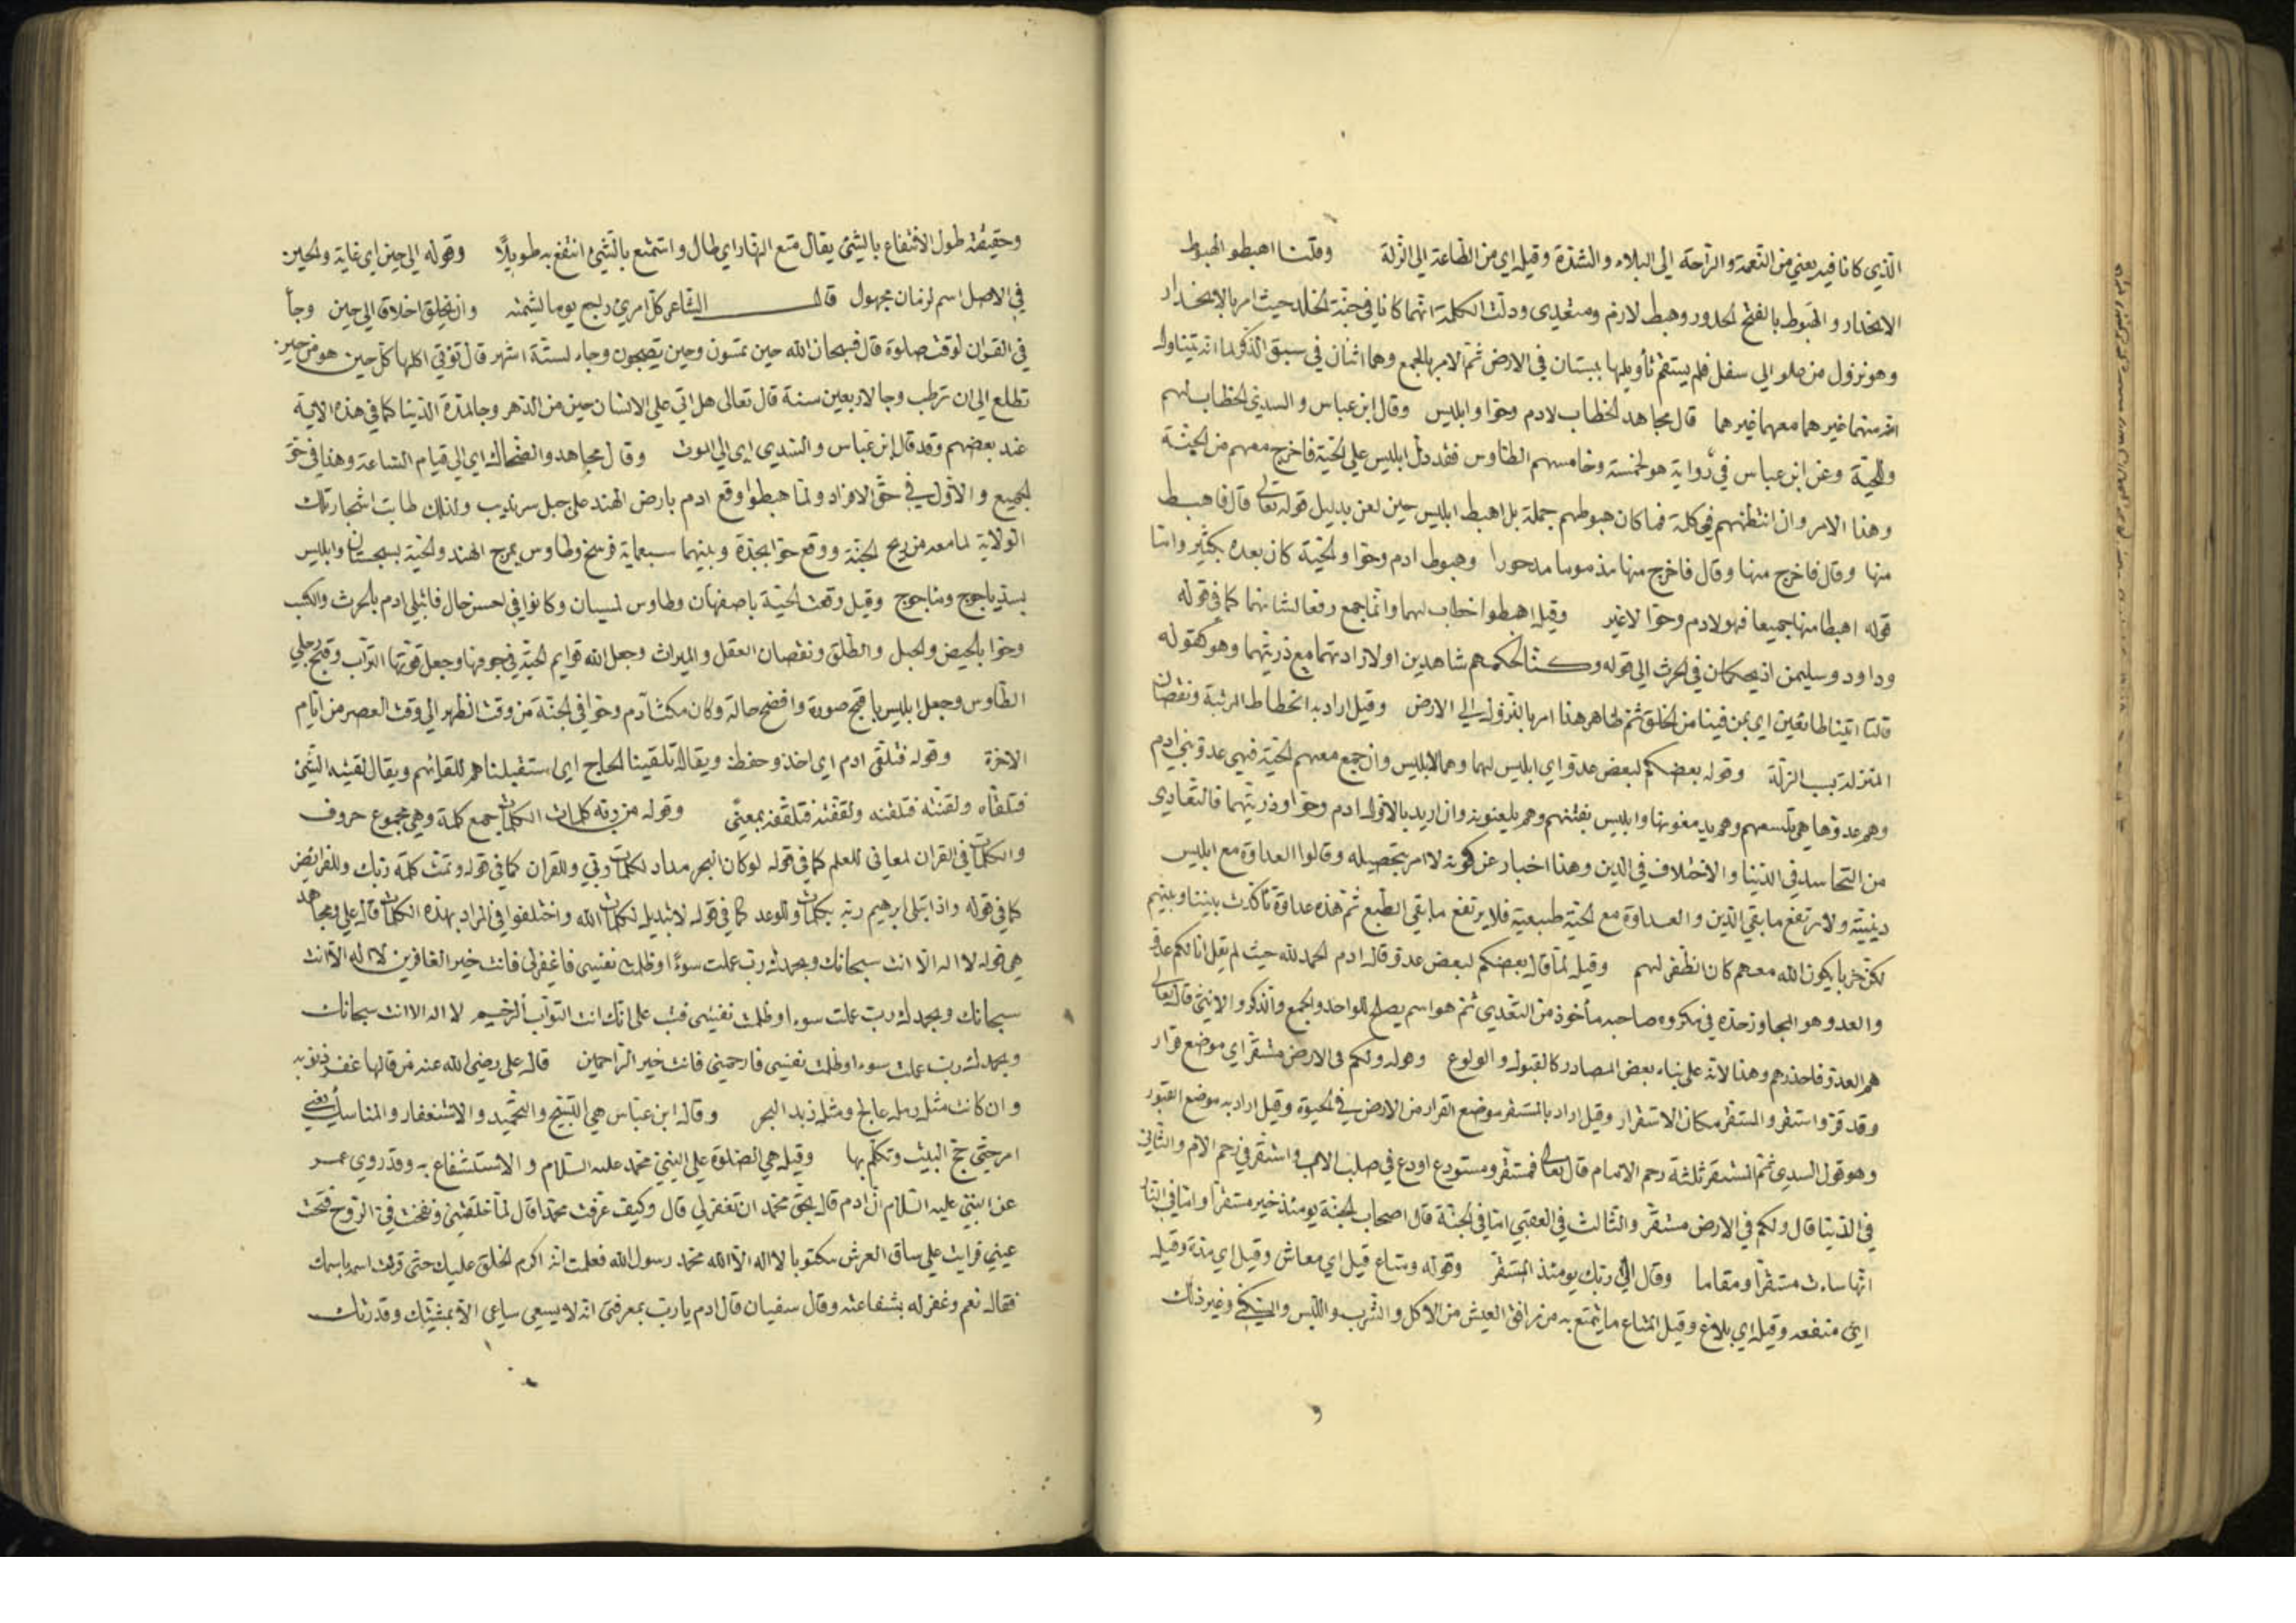 الذي كانا فيه يعني من النعمة والراحة الي البلاء والشدة وقيل اي من الطاعة الي الزلة وقلنا اهبطوا الهبوط
الانحدار والهَبوط بالفتح الحدور وهبط لازم ومتعدي ودلت الكلمة انهما كانا في جنة الخلد حيث امر بالانحدار
وهو نزول من علو الي سفل فلم يستقم تأويلها ببستان في الارض ثم الامر بالجمع وهما اثنان في سبق الذكر لما انه يتناول
غيرهما معهما غيرهما قال مجاهد الخطاب لادم وحوا وابليس وقال ابن عباس والسدي الخطاب لهم
وللحية وعن ابن عباس في رواية هو لخمسة وخامسهم الطاوس فقد دل ابليس علي الحية فاخرج معهم من الجنة
وهذا الامر وان انتظمهم في كلمة فما كان هبوطهم جملة بل اهبط ابليس حين لعن بدليل قوله تعالي قال فاهبط
منها وقال فاخرج منها وقال فاخرج منها مذموما مدحورا وهبوط ادم وحوا والحية كان بعده بكثير واما
قوله اهبطا منها جميعا فهو لادم وحوا لا غير وقيل اهبطوا خطاب لهما وانما جمع رفعا لشانهما كما في قوله
وداود وسليمن اذ يحكمان في الحرث الي قوله وكنا لحكمهم شاهدين او لارادتهما مع ذريتهما وهو كقوله
قالتا اتينا طائعين اي بمن فينا من الخلق ثم ظاهر هذا امر بالنزول الي الارض وقيل اراد به انحطاط المرتبة ونقصان
المنزلة بسبب الزلة وقوله بعضكم لبعض عدو اي ابليس لهما وهما لابليس وان جمع معهم الحية فهي عدو بني ادم
وهم عدوها هي تلسعهم وهم يدمغونها وابليس يفتنهم وهم يلعنونه وان اريد بالاول ادم وحوا وذريتهما فالتعادي
من التحاسد في الدنيا والاختلاف في الدين وهذا اخبار عن كونه لا امر بتحصيله وقالوا العداوة مع ابليس
دينية ولا ترتفع ما بقي الدين والعداوة مع الحية طبيعية فلا يرتفع ما بقي الطبع ثم هذه عداوة تأكدت بيننا وبينهم
لكن حزبا يكون الله معهم كان الظفر لهم وقيل لما قال بعضكم لبعض عدو قال ادم الحمد لله حيث لم يقل انا لكم عدو
والعدو هو المجاوز حده في مكروه صاحبه مأخوذ من التعدي ثم هو اسم يصلح للواحد والجمع والذكر والانثي قال تعالي
هم العدو فاحذرهم وهذا لانه علي بناء بعض المصادر كالقبول والولوع وقوله ولكم في الارض مستقر اي موضع قرار
وقد قر واستقر والمستقر مكان الاستقرار وقيل اراد بالمستقر موضع القرار من الارض في الحيوة وقيل اراد به موضع القبور
وهو قول السدي ثم المستقر ثلثة رحم الام قال تعالي فمستقر ومستودع اودع في صلب الاب واستقر في رحم الام والثاني
في الدنيا قال ولكم في الارض مستقر والثالث في العقبي اما في الجنة قال اصحاب الجنة يومئذ خير مستقرا واما في النار
انها ساءت مستقرا ومقاما وقال الي ربك يومئذ المستقر وقوله ومتاع قيل اي معاش وقيل اي مدة وقيل
اي منفعة وقيل اي بلاغ وقيل المتاع ما يتمتع به من مرافق العيش من الاكل والشرب واللبس وغير ذلك
وحقيقته طول الانتفاع بالشئ يقال متع النهار اي طال واستمتع بالشئ انتفع به طويلًا وقوله الي حين اي غاية والحين
في الاصل اسم لزمان مجهول قال الشاعر كل امرئ يوما لشيمته وان تخلق اخلاقا الي حين وجا
في القران لوقت صلوة قال فسبحان الله حين تمسون وحين تصبحون وجاء لستة اشهر قال تؤتي اكلها كل حين هو من حين
تطلع الي ان ترطب وجا لاربعين سنة قال تعالى هل اتي علي الانسان حين من الدهر وجا لمدة الدنيا كما في هذه الاية
عند بعضهم وقد قال ابن عباس والسدي اي الي الموت وقال مجاهد والضحاك اي الي قيام الساعة وهذا في حق
الجميع والاول في حق الافراد ولما هبطوا وقع ادم بارض الهند علي جبل سرنديب ولذلك طابت اشجار تلك
الولاية لما معه من ريح الجنة ووقع حوا بجدة وبينهما سبعماية فرسخ وطاوس بمرج الهند والحية بسجستان وابليس
بسد ياجوج وماجوج وقيل وقعت الحية باصفهان وطاوس لميسان وكانوا في احسن حال فابتلي ادم بالحرث والكسب
وحوا بالحيض والحبل والطلق ونقصان العقل والميراث وجعل الله قوايم الحية في جوفها وجعل قوتها التراب وقبح رجلي
الطاوس وجعل ابليس باقبح صورة وافضح حالة وكان مكث آدم وحوا في الجنة من وقت الظهر الي وقت العصر من ايام
الاخرة وقوله فتلقي ادم اي اخذ وحفظ ويقال تلقينا الحاج اي استقبلناهم للقائهم ويقال لقيته الشئ
فتلقاه ولقنته فتلقنه ولقفته فتلقفه بمعنًي وقوله من ربه كلمات الكلمات جمع كلمة وهي مجموع حروف
والكلمات في القران لمعاني للعلم كما في قوله لو كان البحر مداد لكلمات ربي وللقران كما في قوله وتمت كلمة ربك وللفرايض
كما في قوله واذ ابتلي ابرهيم ربه بكلمات وللوعد كما في قوله لا تبديل لكلمات الله واختلفوا في المراد بهذه الكلمات قال علي ومجاهد
هي قوله لا اله الا انت سبحانك وبحمدك رب عملت سوءً او ظلمت نفسي فاغفر لي فانت خير الغافرين لا اله الا انت
سبحانك وبحمدك رب عملت سوء او ظلمت نفسي فتب علي انك انت التواب الرحيم لا اله الا انت سبحانك
وبحمدك رب عملت سوء او ظلمت نفسي فارحمني فانت خير الراحمين قال علي رضي الله عنه من قالها غفر ذنوبه
وان كانت مثل رمل عالج ومثل زبد البحر وقال ابن عباس هي التسبيح والتحميد والاستغفار والمناسك يعني
امر حتي حج البيت وتكلم بها وقيل هي الصلوة علي النبي محمد عليه السلام والاستشفاع به وقد روي عمر
عن النبي عليه السلام ان ادم قال بحق محمد ان تغفر لي قال وكيف عرفت محمدا قال لما خلقتني ونفخت في الروح فتحت
عيني فرايت علي ساق العرش مكتوبا لا اله الا الله محمد رسول الله فعلمت انه اكرم الخلق عليك حتي قرنت اسمه باسمك
فقال نعم وغفر له بشفاعته وقال سفيان قال ادم يا رب بمعرفتي انه لا يسعي ساعي الا بمشيتك وقدرتك